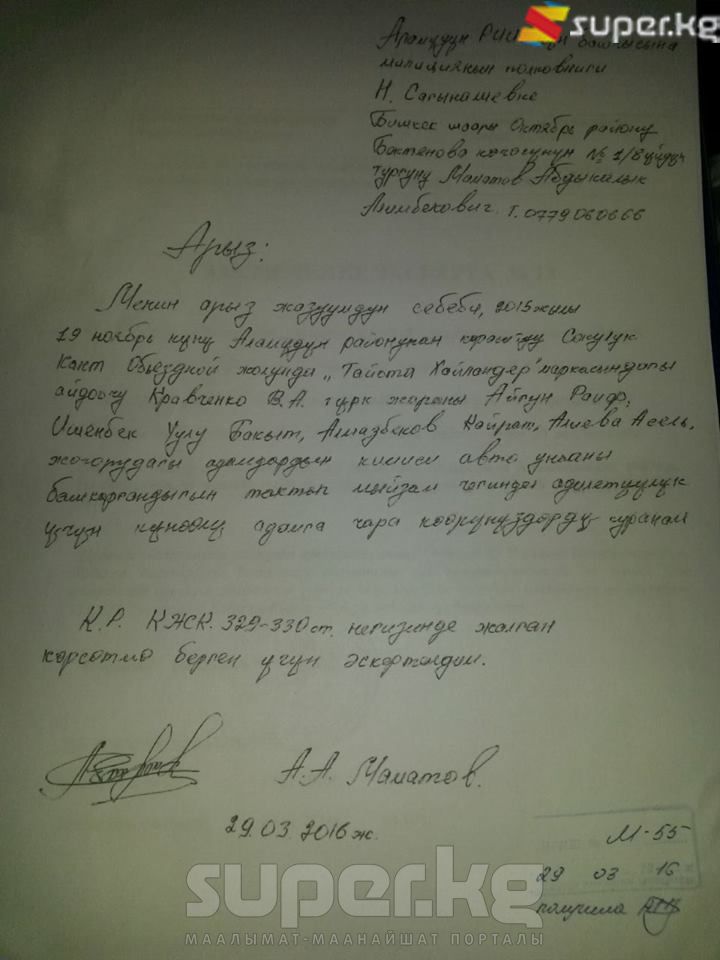 super.kg
Аламүдүн РИИБ нүн башчысына
милициянын полковниги
Н. Сагыналиевке
Бишкек шаары Октябрь району
Бактенова көчөсүнүн № 1/8 үйдүн
тургуну Маматов Абдыкалык
Азимбекович. Т. 0779060666
Арыз:
Менин арыз жазуумдун себеби, 2015 жылы
19 ноябрь күнү Аламүдүн районунан караштуу Сокулук
Кант Объездной жолунда „Тайота Хайландер" маркасындагы
айдоочу Кравченко В.А. түрк жараны Айгун Раиф,
Ишенбек Уулу Бакыт, Алмазбеков Кайрат, Алиева Асель,
жогорудагы адамдардын кимиси авто унааны
башкаргандыгын тактап мыйзам чегинде адилеттүүлүк
үчүн күнөөлүү адамга чара көрүүңүздөрдү суранам
К.Р. КЖК. 329-330 ст. негизинде жалган
көрсөтмө берген үчүн эскертилдим.
А.А. Маматов.
29.03.2016 ж.
М-55
29 03 16
получила
super.kg
МААЛЫМАТ-МААНАЙШАТ ПОРТАЛЫ